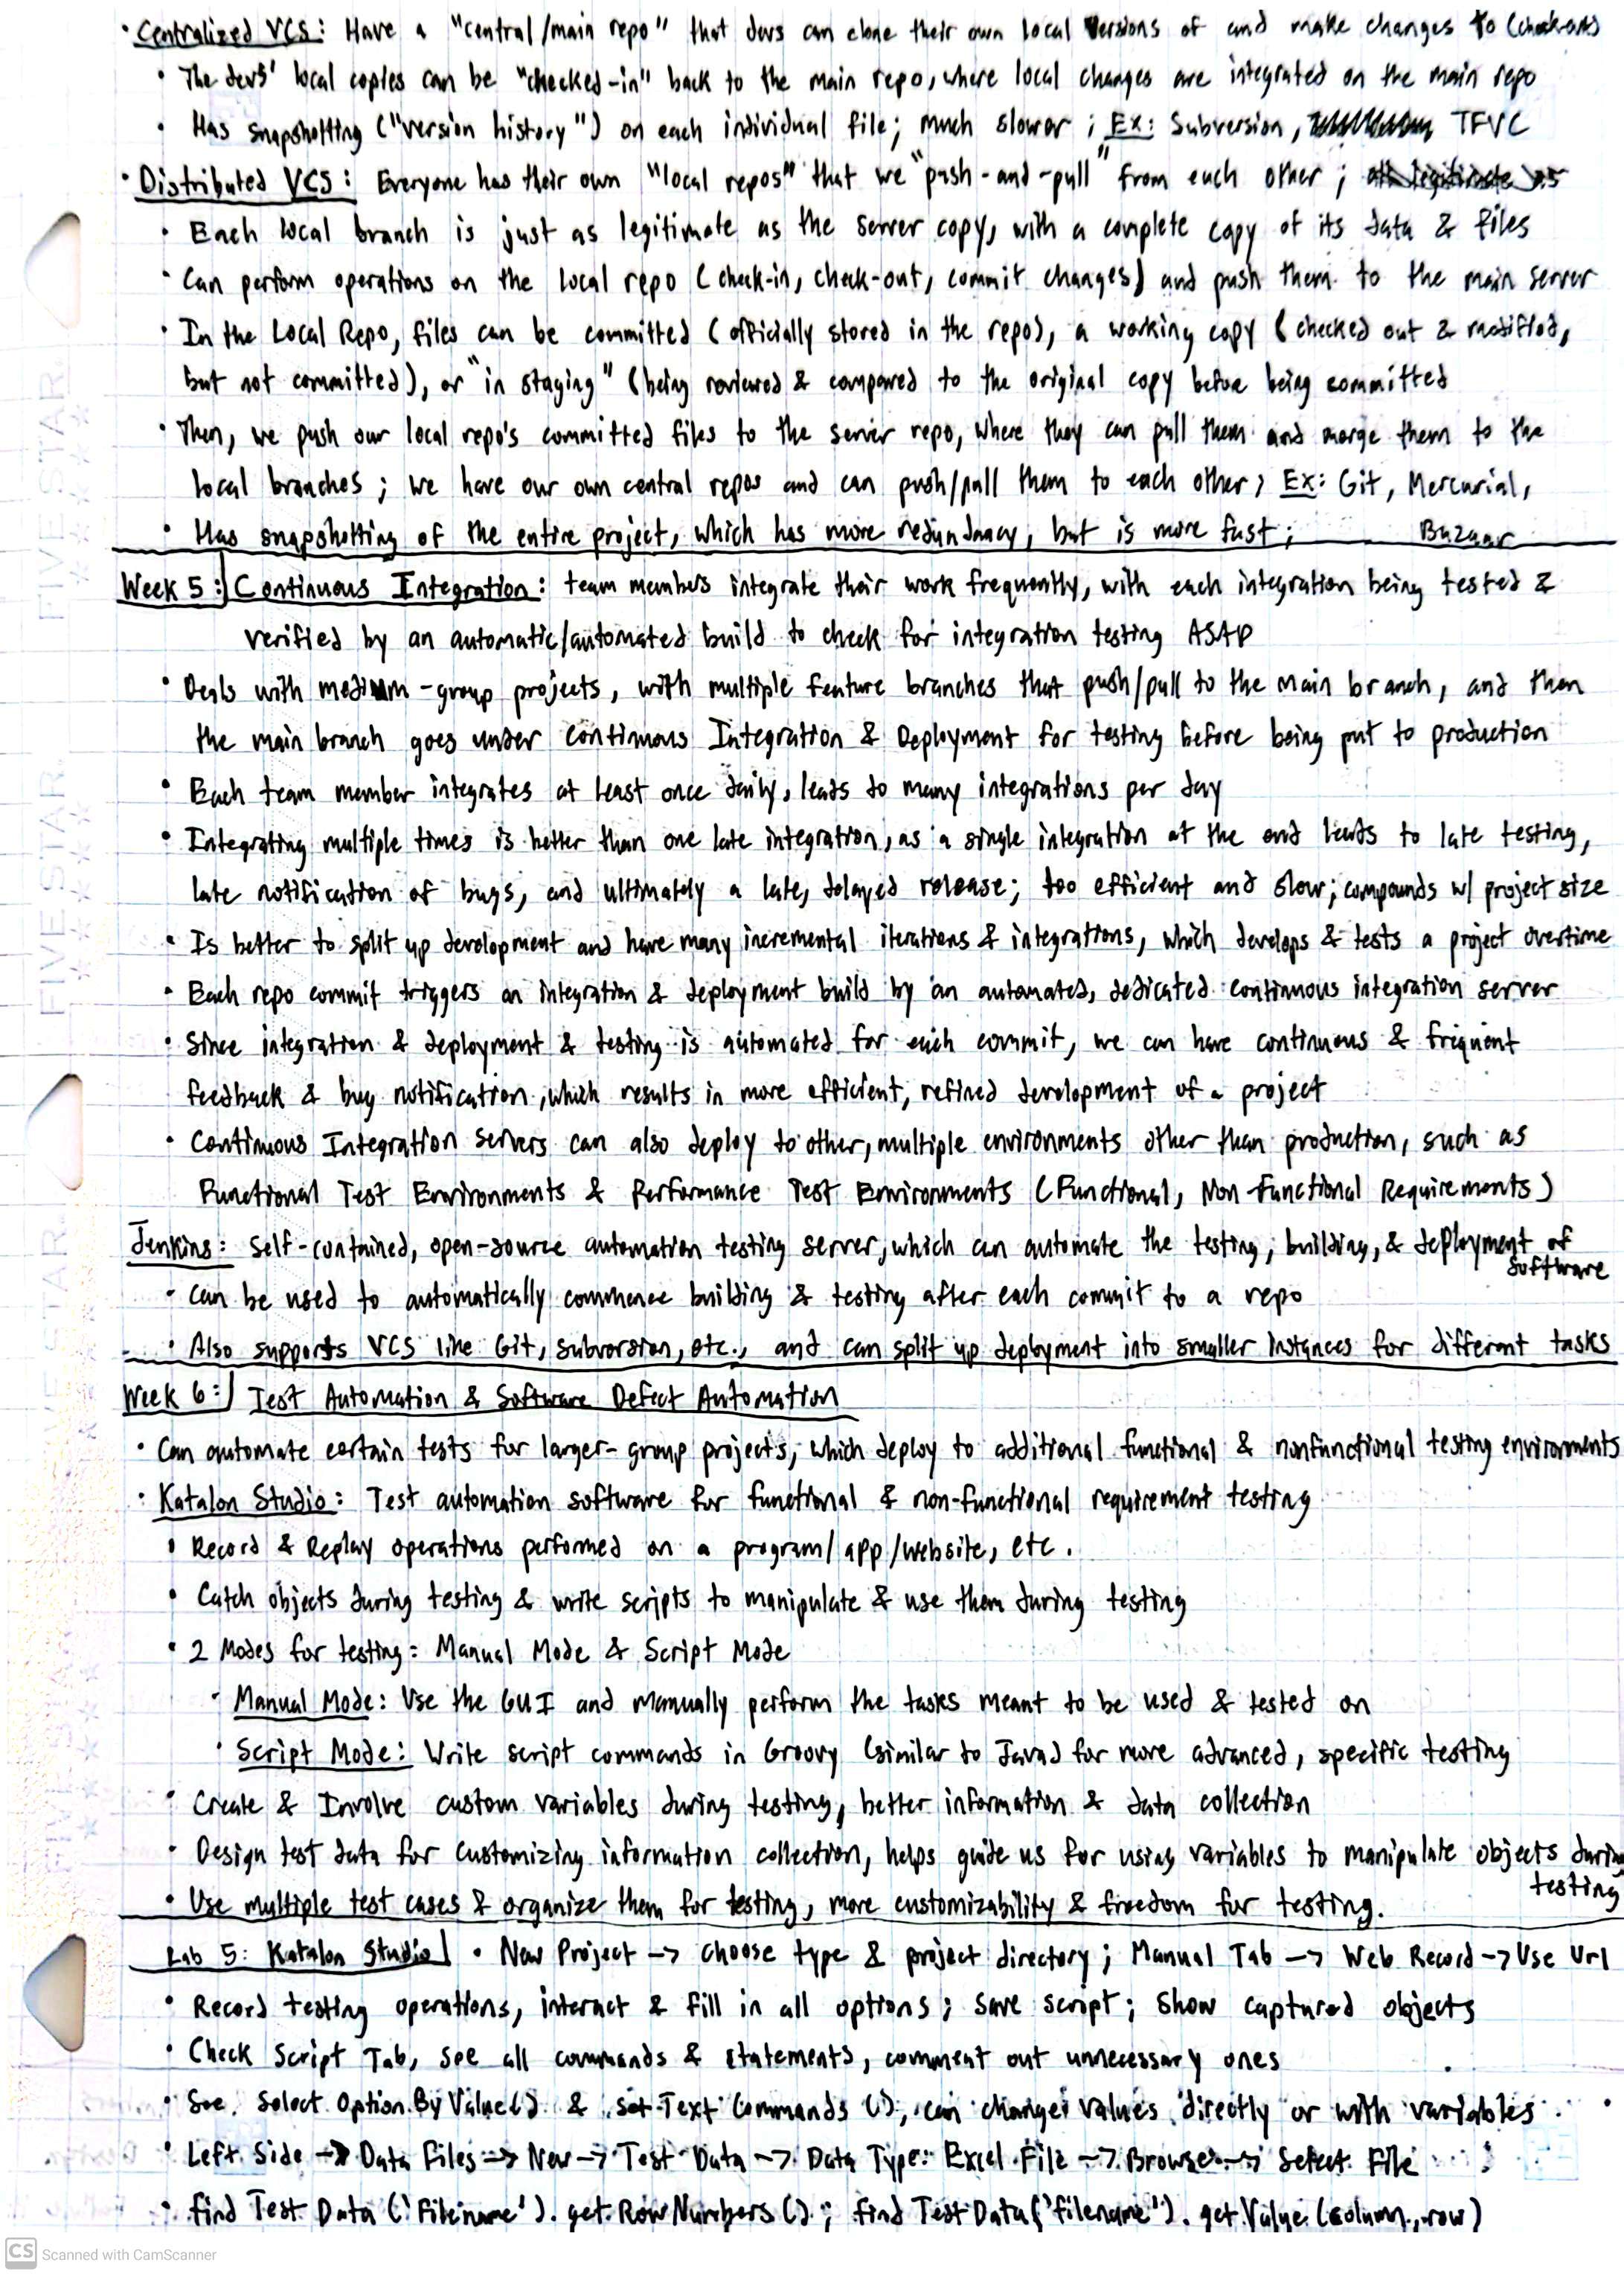 • Centralized VCS: Have a "central/main repo" that devs can clone their own local versions of and make changes to (check-outs)
• The devs' local copies can be "checked-in" back to the main repo, where local changes are integrated on the main repo
• Has snapshotting ("version history") on each individual file; much slower; Ex: Subversion, TFVC
• Distributed VCS: Everyone has their own "local repos" that we "push-and-pull" from each other;
• Each local branch is just as legitimate as the server copy, with a complete copy of its data & files
• Can perform operations on the local repo (check-in, check-out, commit changes) and push them to the main server
• In the Local Repo, files can be committed (officially stored in the repo), a working copy (checked out & modified,
but not committed), or "in staging" (being reviewed & compared to the original copy before being committed
• Then, we push our local repo's committed files to the server repo, where they can pull them and merge them to the
local branches; we have our own central repos and can push/pull them to each other; Ex: Git, Mercurial,
• Has snapshotting of the entire project, which has more redundancy, but is more fast; Bazaar
Week 5: Continuous Integration: team members integrate their work frequently, with each integration being tested &
verified by an automatic/automated build to check for integration testing ASAP
• Deals with medium-group projects, with multiple feature branches that push/pull to the main branch, and then
the main branch goes under Continuous Integration & Deployment for testing before being put to production
• Each team member integrates at least once daily, leads to many integrations per day
• Integrating multiple times is better than one late integration, as a single integration at the end leads to late testing,
late notification of bugs, and ultimately a late, delayed release; too efficient and slow; compounds w/ project size
• Is better to split up development and have many incremental iterations & integrations, which develops & tests a project overtime
• Each repo commit triggers an integration & deployment build by an automated, dedicated continuous integration server
• Since integration & deployment & testing is automated for each commit, we can have continuous & frequent
feedback & bug notification, which results in more efficient, refined development of a project
• Continuous Integration servers can also deploy to other, multiple environments other than production, such as
Functional Test Environments & Performance Test Environments (Functional, Non-Functional Requirements)
Jenkins: Self-contained, open-source automation testing server, which can automate the testing, building, & deployment of
software
• Can be used to automatically commence building & testing after each commit to a repo
• Also supports VCS like Git, Subversion, etc., and can split up deployment into smaller instances for different tasks
Week 6: Test Automation & Software Defect Automation
• Can automate certain tests for larger-group projects, which deploy to additional functional & nonfunctional testing environments
• Katalon Studio: Test automation software for functional & non-functional requirement testing
• Record & Replay operations performed on a program/app/website, etc.
• Catch objects during testing & write scripts to manipulate & use them during testing
• 2 Modes for testing: Manual Mode & Script Mode
• Manual Mode: Use the GUI and manually perform the tasks meant to be used & tested on
• Script Mode: Write script commands in Groovy (similar to Java) for more advanced, specific testing
• Create & Involve custom variables during testing, better information & data collection
• Design test data for customizing information collection, helps guide us for using variables to manipulate objects during
testing
• Use multiple test cases & organize them for testing, more customizability & freedom for testing.
Lab 5: Katalon Studio • New Project -> Choose type & project directory; Manual Tab -> Web Record -> Use Url
• Record testing operations, interact & fill in all options; save script; show captured objects
• Check Script Tab, see all commands & statements, comment out unnecessary ones
• See Select Option By Value() & set Text Commands (), can change values directly or with variables
• Left Side -> Data Files -> New -> Test Data -> Data Type: Excel File -> Browse -> Select File
• find Test Data ('Filename'). get RowNumbers(); find TestData('filename'). getValue(column, row)
CS Scanned with CamScanner
FIVE STAR.
FIVE STAR.